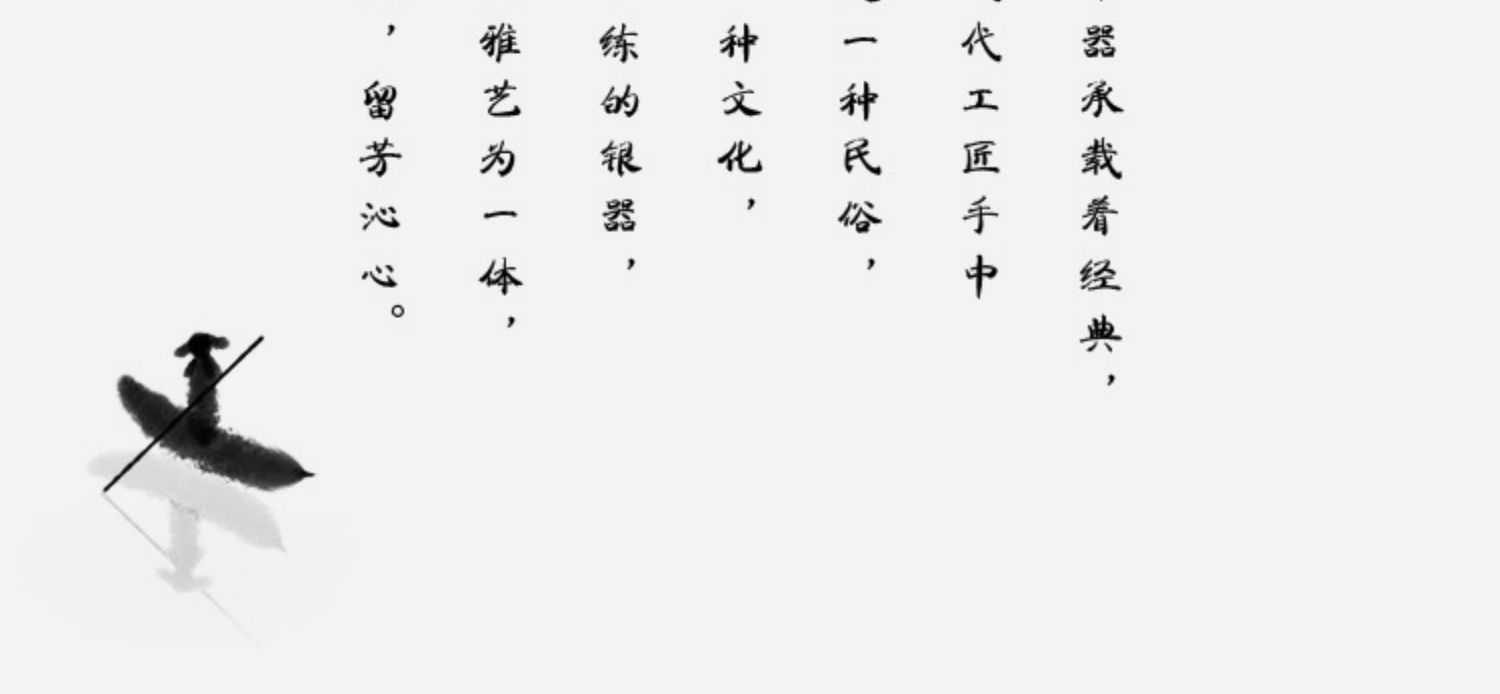 器承载着经典，
代工匠手中
一种民俗，
种文化，
练的银器，
雅艺为一体，
，留芳沁心。